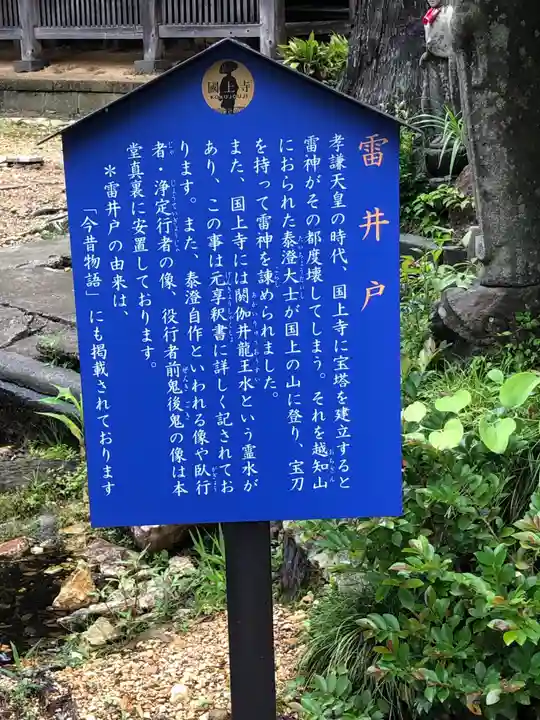 國上寺
KOKUJOUJI
雷井戸
孝謙天皇の時代、国上寺に宝塔を建立すると
雷神がその都度壊してしまう。それを越知山
におられた泰澄大士が国上の山に登り、宝刀
を持って雷神を諌められました。
また、国上寺には閼伽井龍王水という霊水が
あり、この事は元享釈書に詳しく記されてお
ります。また、泰澄自作といわれる像や臥行
者・浄定行者の像、役行者前鬼後鬼の像は本
堂真裏に安置しております。
＊雷井戸の由来は、
「今昔物語」にも掲載されております